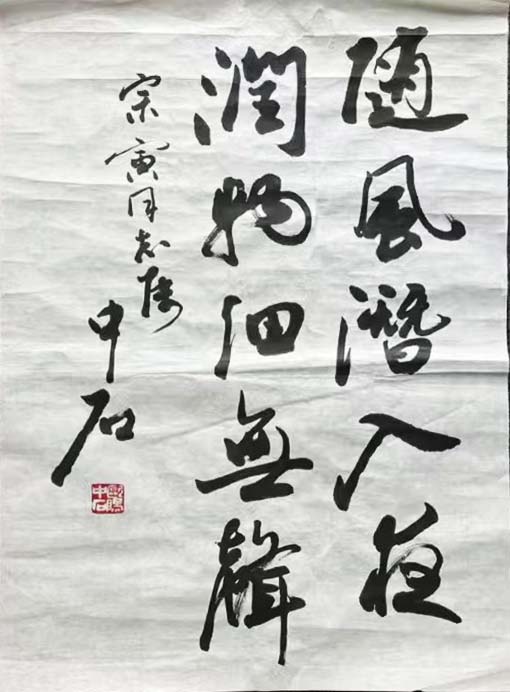 隨風潛入夜
潤物細無聲
宗寅同志属
中石
中石